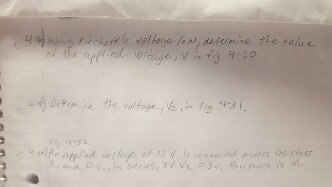 using Kirchoff's voltage law, determine the value
of the applied voltage, V in fig 4-30
Determine the voltage, V2, in fig 4-31.
Fig 4-32
An applied voltage of 15 V is connected across resistors
R1 and R2, in series, If V2 = 3v, How much is V1.